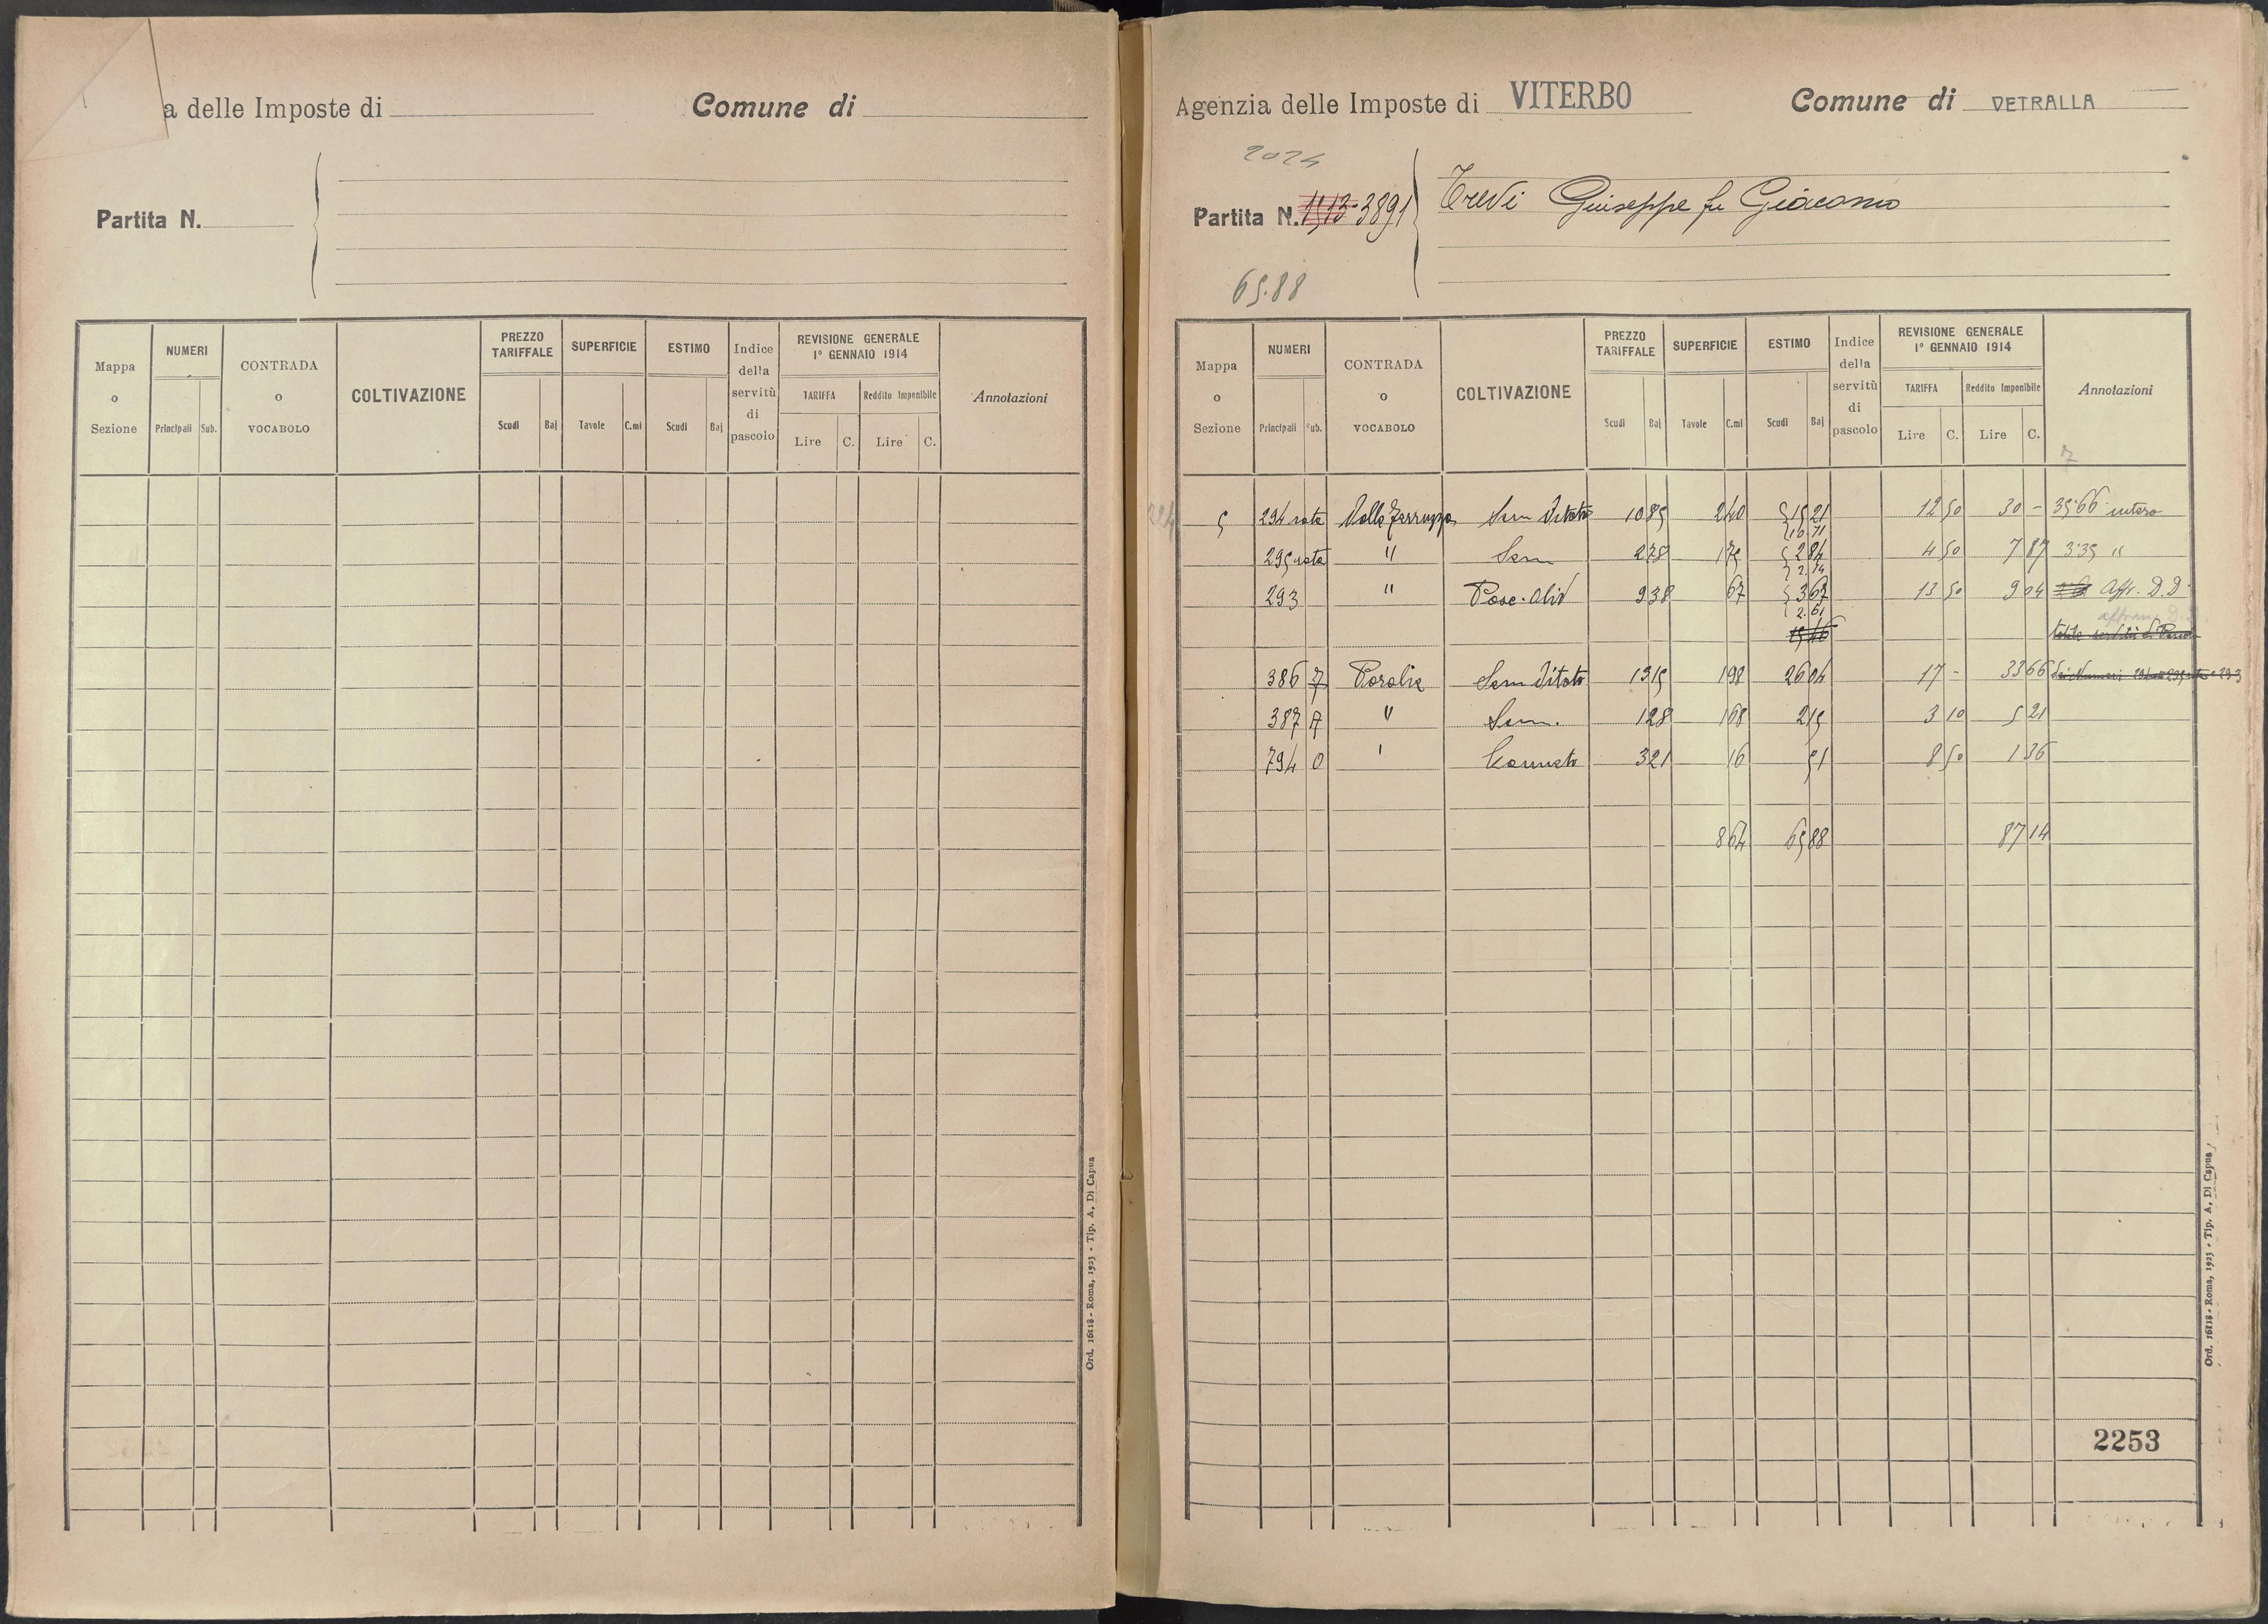 a delle Imposte di Comune di
Partita N.
Mappa o Sezione NUMERI Principali Sub. CONTRADA o VOCABOLO COLTIVAZIONE PREZZO TARIFFALE Scudi Baj SUPERFICIE Tavole C.mi ESTIMO Scudi Baj Indice della servitù di pascolo REVISIONE GENERALE 1° GENNAIO 1914 TARIFFA Lire C. Reddito Imponibile Lire C. Annotazioni
Ord. 16118 - Roma, 1923 - Tip. A. Di Capua
Agenzia delle Imposte di VITERBO Comune di VETRALLA
2024
Partita N. 1513 3891 Trevi Giuseppe fu Giacomo
65.88
Mappa o Sezione NUMERI Principali Sub. CONTRADA o VOCABOLO COLTIVAZIONE PREZZO TARIFFALE Scudi Baj SUPERFICIE Tavole C.mi ESTIMO Scudi Baj Indice della servitù di pascolo REVISIONE GENERALE 1° GENNAIO 1914 TARIFFA Lire C. Reddito Imponibile Lire C. Annotazioni
7
5 294 rata Sem Vitato 1085 240 15 21 12 50 30 - 35 66 intero
10 71
295 rata " Sem 278 175 2 84 4 50 7 87 3.35 "
2.14
293 " Pasc. Oliv 938 67 3 67 13 50 9 04 Affr. D.D.
2.61
affranc D.D.
386 7 Poralie Sem Vitato 1315 198 26 04 17 - 33 66
387 A " Sem. 128 168 2 15 3 10 5 21
794 0 ' Canneto 321 16 51 8 50 1 36
8 64 65 88 87 14
2253
Ord. 16118 - Roma, 1923 - Tip. A. Di Capua